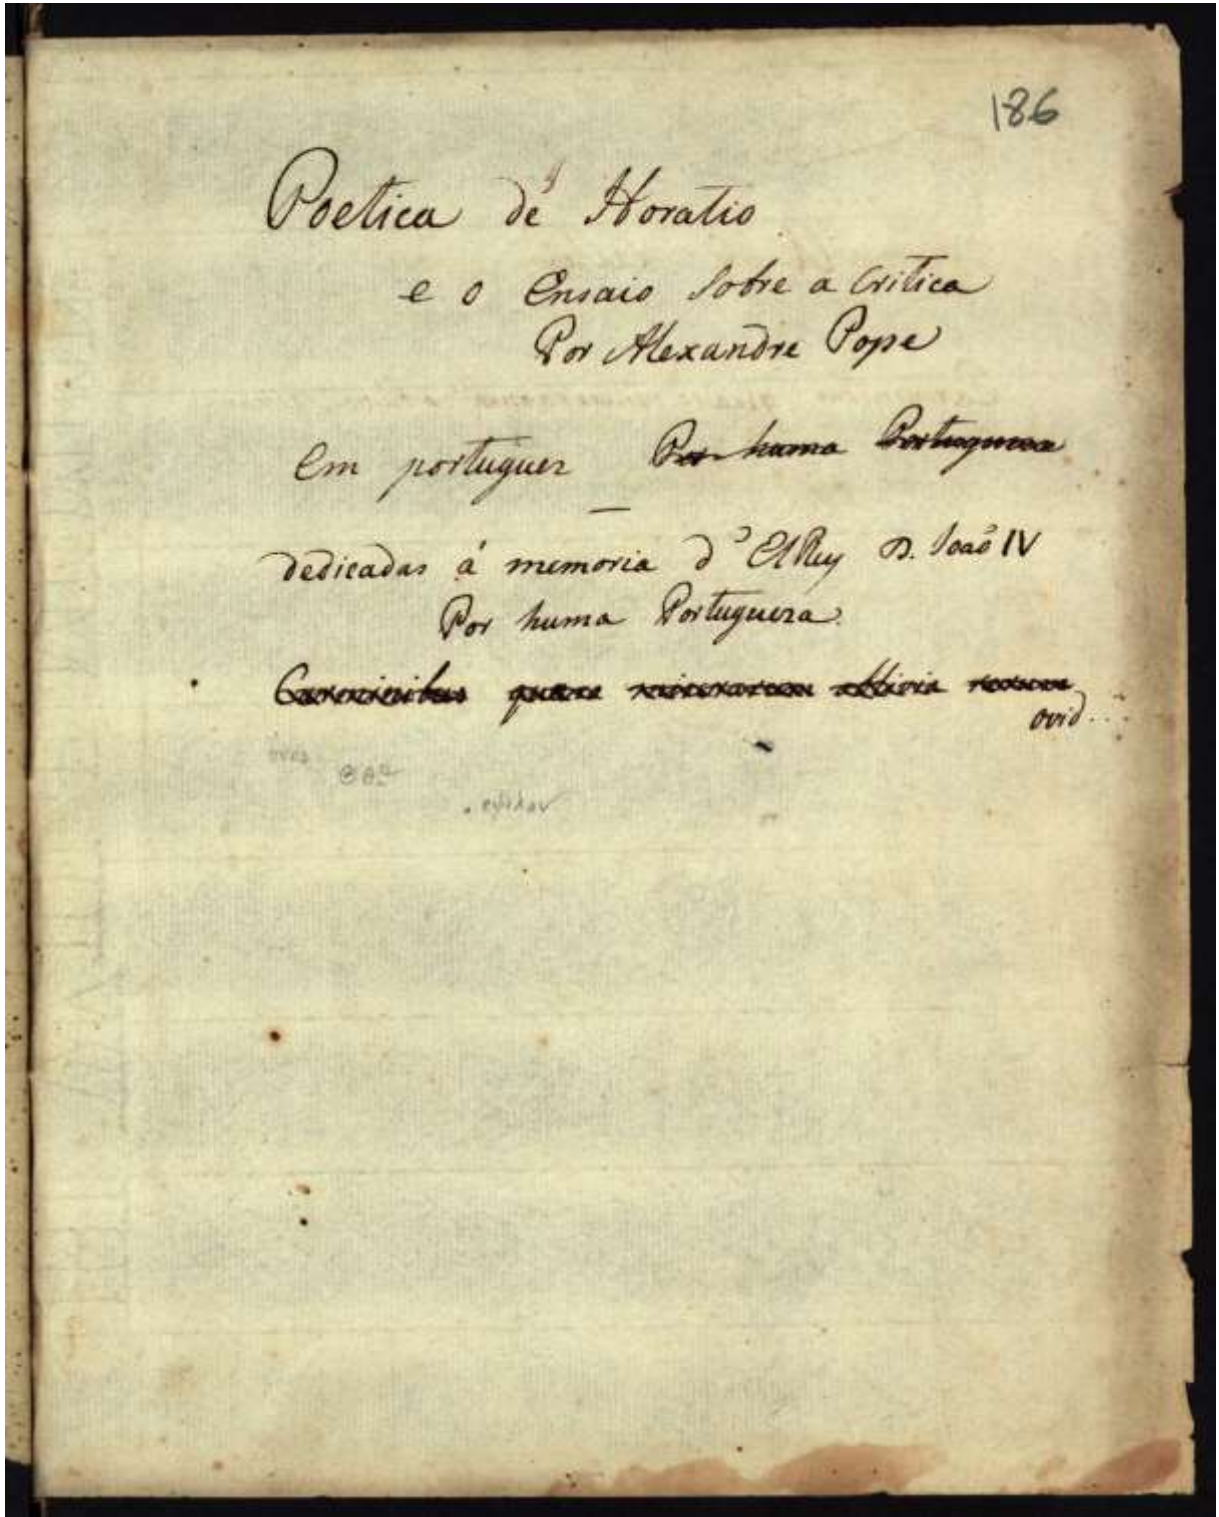 186
Poetica de Horatio
e o Ensaio sobre a Critica
Por Alexandre Pope
Em portuguez Por huma Portugueza
dedicadas á memoria d'ElRey D. Joaõ IV
Por huma Portugueza.
Carminibus quaero oblivia rerum
Ovid...